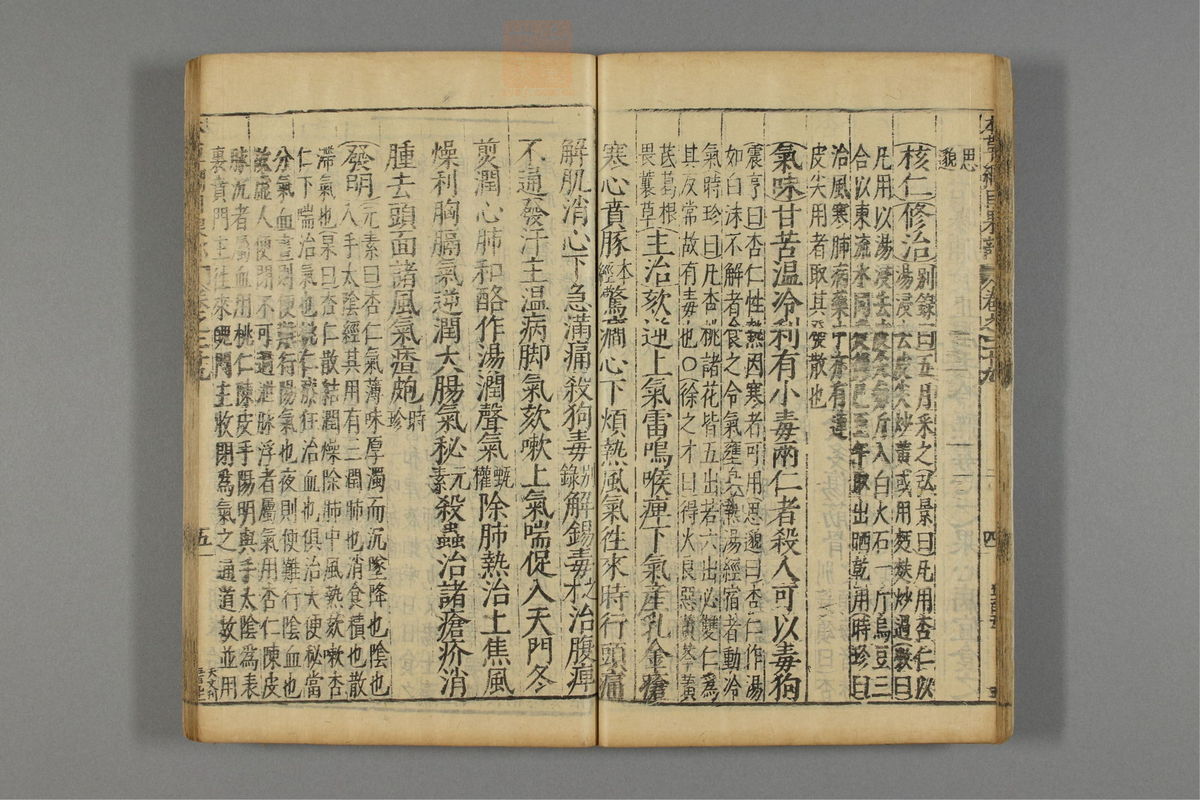 本草綱目果部 卷之二十九 四
思
邈
核仁修治別錄曰五月采之弘景曰凡用杏仁以
湯浸去皮尖炒黃或用麪麩炒過斅曰
凡用以湯浸去皮尖每斤入白火石一斤烏豆三
合以東流水同煮從巳至午取出晒乾用時珍曰
治風寒肺病藥中亦有連
皮尖用者取其發散也
氣味甘苦溫冷利有小毒兩仁者殺人可以毒狗
震亨曰杏仁性熱因寒者可用思邈曰杏仁作湯
如白沫不解者食之令氣壅身熱湯經宿者動冷
氣時珍曰凡杏桃諸花皆五出若六出必雙仁爲
其反常故有毒也○徐之才曰得火良惡黃芩黃
芪葛根
畏蘘草主治欬逆上氣雷鳴喉痺下氣產乳金瘡
寒心賁豚本經驚癇心下煩熱風氣往來時行頭痛
解肌消心下急滿痛殺狗毒別錄解錫毒之才治腹痺
不通發汗主温病脚氣欬嗽上氣喘促入天門冬
煎潤心肺和酪作湯潤聲氣甄權除肺熱治上焦風
燥利胸膈氣逆潤大腸氣秘元素殺蟲治諸瘡疥消
腫去頭面諸風氣瘡皰時珍
發明元素曰杏仁氣薄味厚濁而沉墜降也陰也
入手太陰經其用有三潤肺也消食積也散
滯氣也杲曰杏仁散結潤燥除肺中風熱欬嗽杏
仁下喘治氣也桃仁療狂治血也俱治大便秘當
分氣血晝則便難行陽氣也夜則便難行陰血也
故虛人便閉不可過泄脉浮者屬氣用杏仁陳皮
脉沉者屬血用桃仁陳皮手陽明與手太陰爲表
裏賁門主往來魄門主收閉爲氣之通道故並用
五